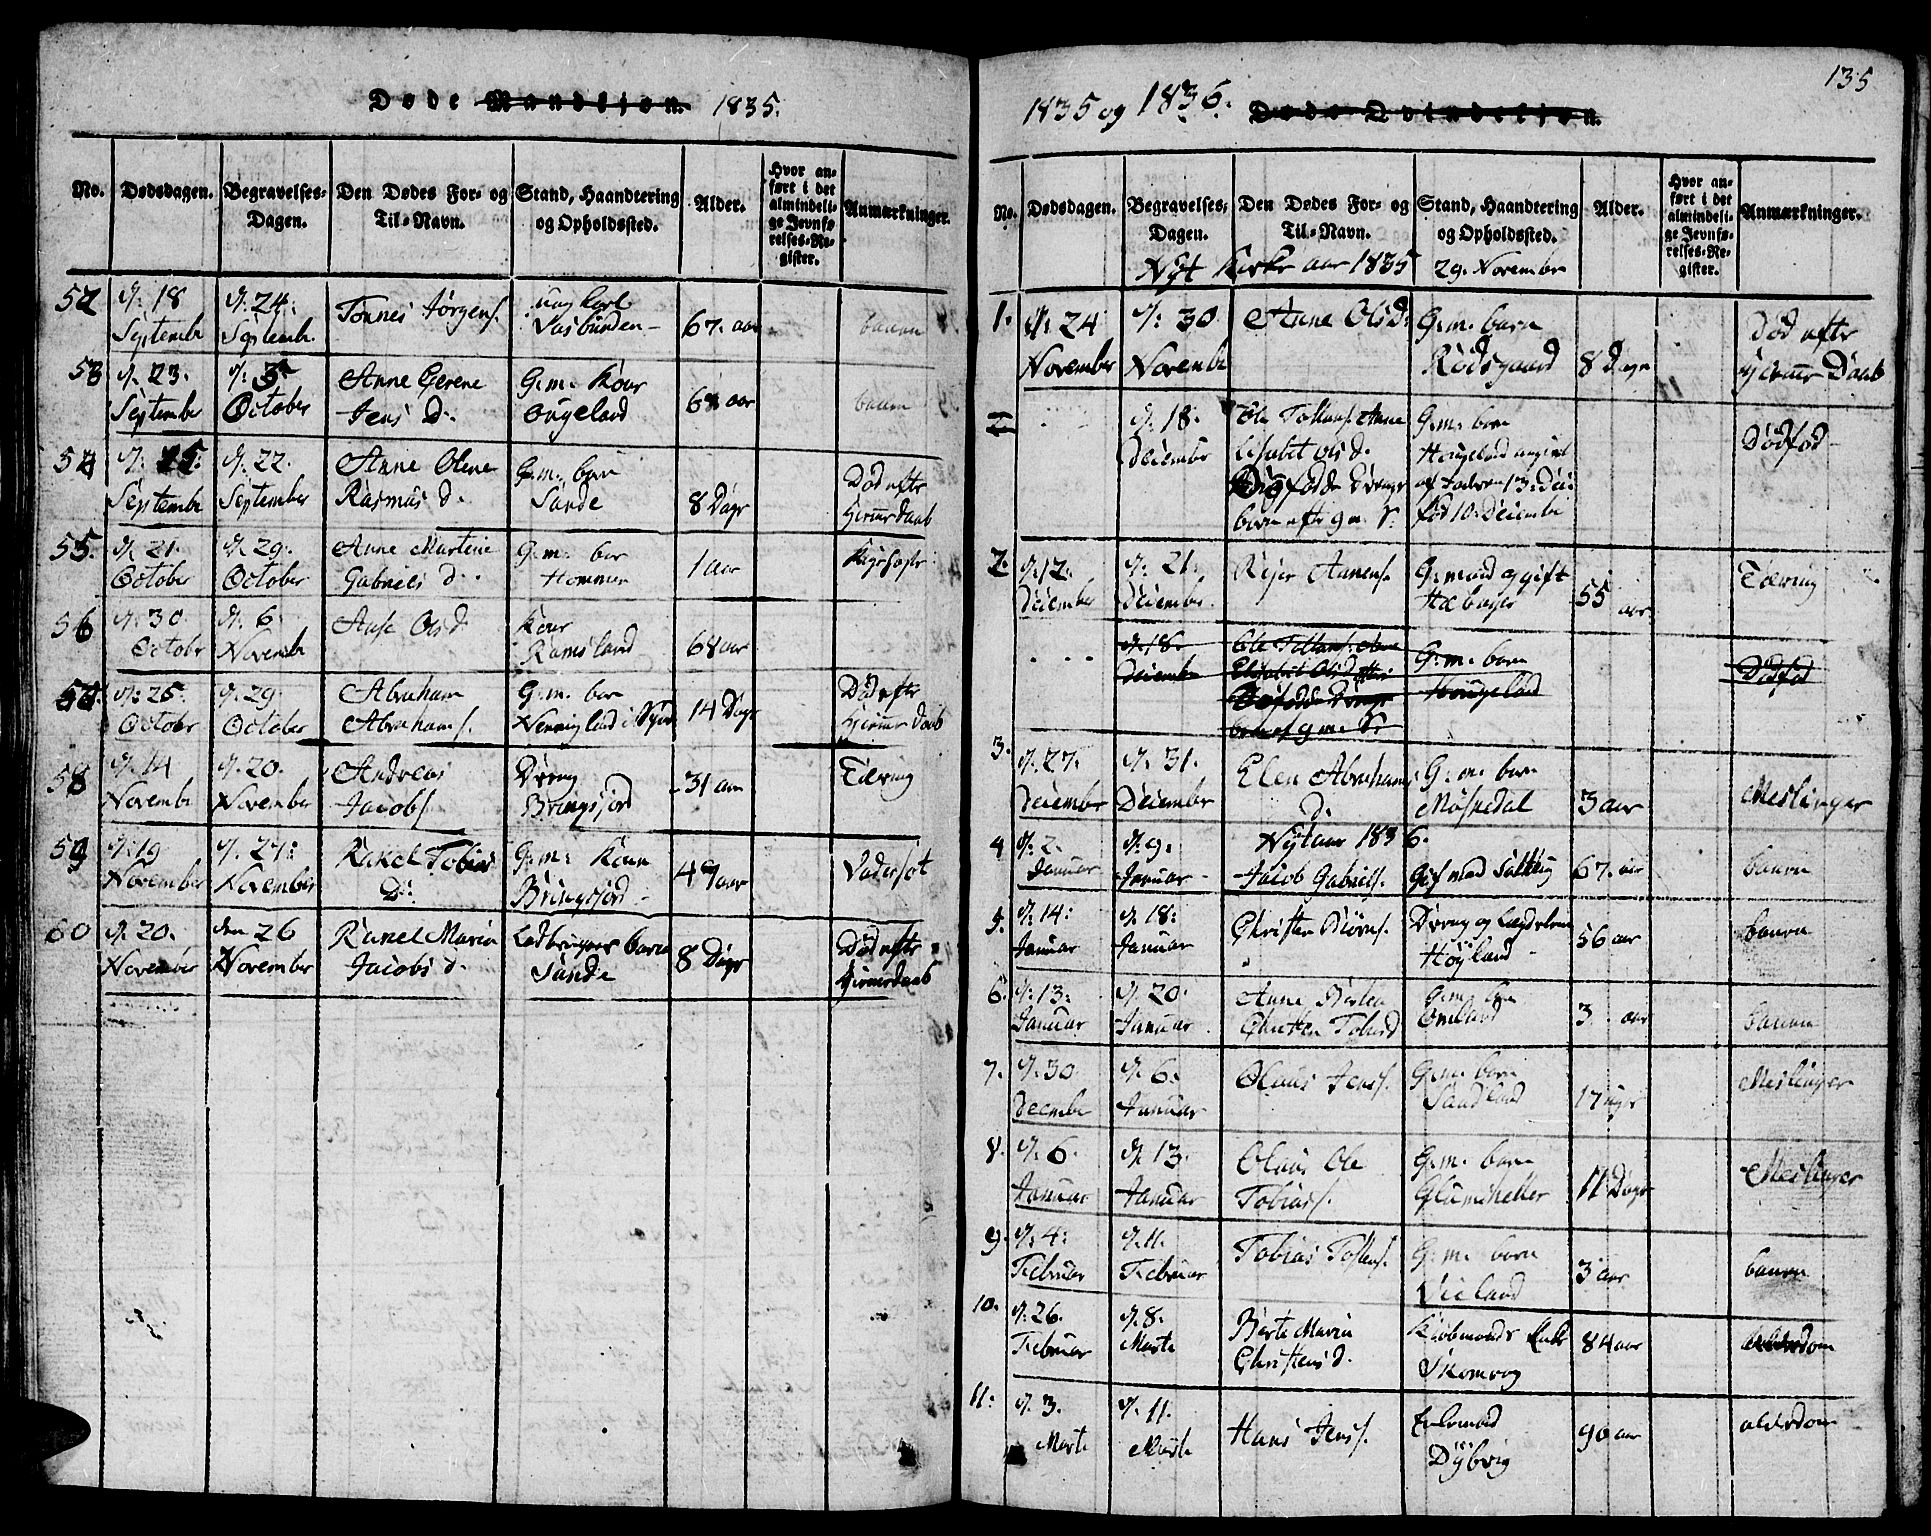 Døde Mandkjøn. 1835.
No. Dødsdagen. Begravelses-Dagen. Den Dødes For- og Til-Navn. Stand, Haandtering og Opholdssted. Alder. Hvor anført i det almindelige Jevnførelses-Register. Anmærkninger.
52 d: 18 September d: 24: September Tønnes Jørgens. Lasbunden 67. aar
53 d. 23. September d: 3 October Anne Gerene Jens D. G.m. Kone 64 aar
54 d: 15. September d. 22. September Anne Olene Rasmus d. G.m. barn Sande 8 Dage Død efter Hiemmedaab
55. d. 21. October d. 29. October Anne Martine Gabriels d. G.m. bar Hommer 1 aar Kighoste
56 d: 30 October d. 6. November Ase Ols d Kone Ramsland 68 aar
57. d: 25 October d. 29. October Abraham Abrahams. G.m. bar 14 Dage Død efter Hiemmedaab
58 d. 14 November d. 20. November Andreas Jacobs. Dreng Bringsjord 31 aar Tæring
59 d. 19 November d. 27: November Rakel Tobias D: G:m: Kone Bringsjord 49 aar Vadersot
60 d. 20. November den 26 November Rakel Maria Jacobs d. barn Sande 8 Dage Død efter Hiemmedaab
135
1835 og 1836. Døde Qvindekjøn.
No. Dødsdagen. Begravelses-Dagen. Den Dødes For- og Til-Navn. Stand, Haandtering og Opholdssted. Alder. Hvor anført i det almindelige Jevnførelses-Register. Anmærkninger.
Nyt Kirke aar 1835 29. November
1. d: 24 November d: 30 November Anne Olsd: G:m. barn Rødsgaard 8 Dage Død efter Hiemme Daab
d. 18. Deiember Ole Tollans. Anne Elisabet Ols d. Døfødde Drenge born efter g.m. S. G.m. born Hougeland 13. Dei: fød 10. Deiembe Dødfød
2. d. 12. Deiember d. 21. Deiember. Rejer Aanens. G.mand og gift 55 aar Tæring
d. 18. Deiember Ole Tollans. Anne Elisabet Ols d. Døfødde Drenge born af g.m. S. G.m. born Hougeland Dødfød
3. d. 27. Deiember d. 31. Deiember Elen Abrahams D. G.m. barn Møskedal 3 aar Meslinger
Nytaar 1836.
4 d: 2. Januar d. 9. Januar Jacob Gabriels. 67. aar
5. d. 14: Januar d. 18: Januar Christen Biørns. Dreng og Lægdslem Høyland 56 aar
6. d. 13: Januar d. 20. Januar Anne Berta Christen Tobias d G.m. bar Omland 3 aar
7. d. 30 December d. 6. Januar Olaus Jens. G.m. barn Sandland 17 uger Meslinger
8. d. 6. Januar d. 13. Januar Olaus Ole Tobias. G.m. barn Glamsheller 11 Dage Meslinger
9. d. 4: Februar d. 11. Februar Tobias Tollens. G.m. barn Vieland 3 aar
10. d. 26. Februar d. 8. Marts Berte Maria Christens d. Kiøbmands Enke Skomrog 84 aar alderdom
11: d. 3. Marts d. 11. Marts Hans Jens. Enkemand Dÿbvig 90 aar alderdom